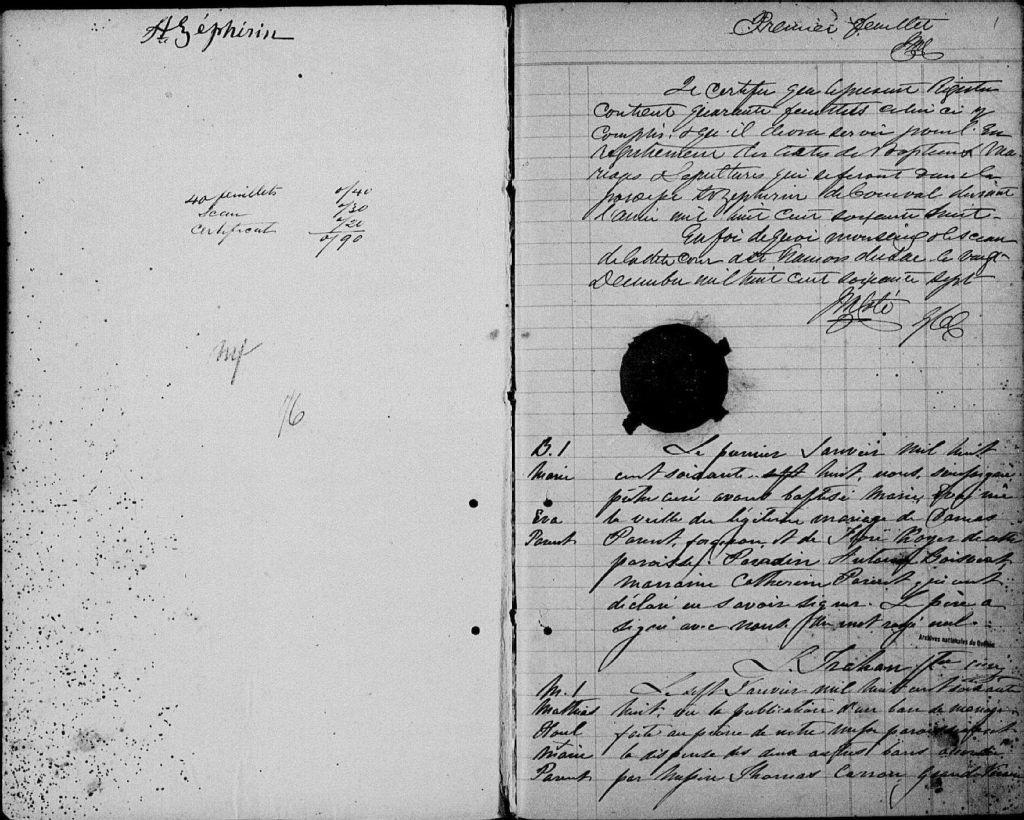 St Zéphirin
40 feuillets 0/40
Sceau 0/30
Certificat 0/20
0/90
76
Premier feuillet
1
Je certifie que le présent Registre
contient quarante feuillets celui ci y
compris, & qu'il devra servir pour l'En
registrement des actes de Baptêmes Ma-
riages & Sepultures qui se feront dans la
paroisse St Zéphirin de Courval durant
l'année mil huit cent soixante huit-
En foi de quoi mon seing & le sceau
de la dite cour a St François du Lac le vingt
Décembre mil huit cent soixante sept
B. 1
Marie
Eva
Parent
Le premier Janvier mil huit
cent soixante sept huit, nous, soussigné
prêtre curé avons baptisé Marie Eva née
la veille du légitime mariage de Damas
Parent, forgeron, et de Royer de cette
paroisse. Parrain Antoine Boisvert,
marraine Catherine Parent qui ont
déclaré ne savoir signer. Le père a
signé avec nous. Un mot rayé nul.
Archives nationales du Québec
S. Trahan Ptre curé
M. 1
Mathias
Houl
Marie
Parent
Le sept Janvier mil huit cent soixante
huit, vu la publication d'un ban de mariage
faite au prône de notre messe paroissiale et
la dispense des deux autres bans accordée
par Messire Thomas Caron Grand Vicaire